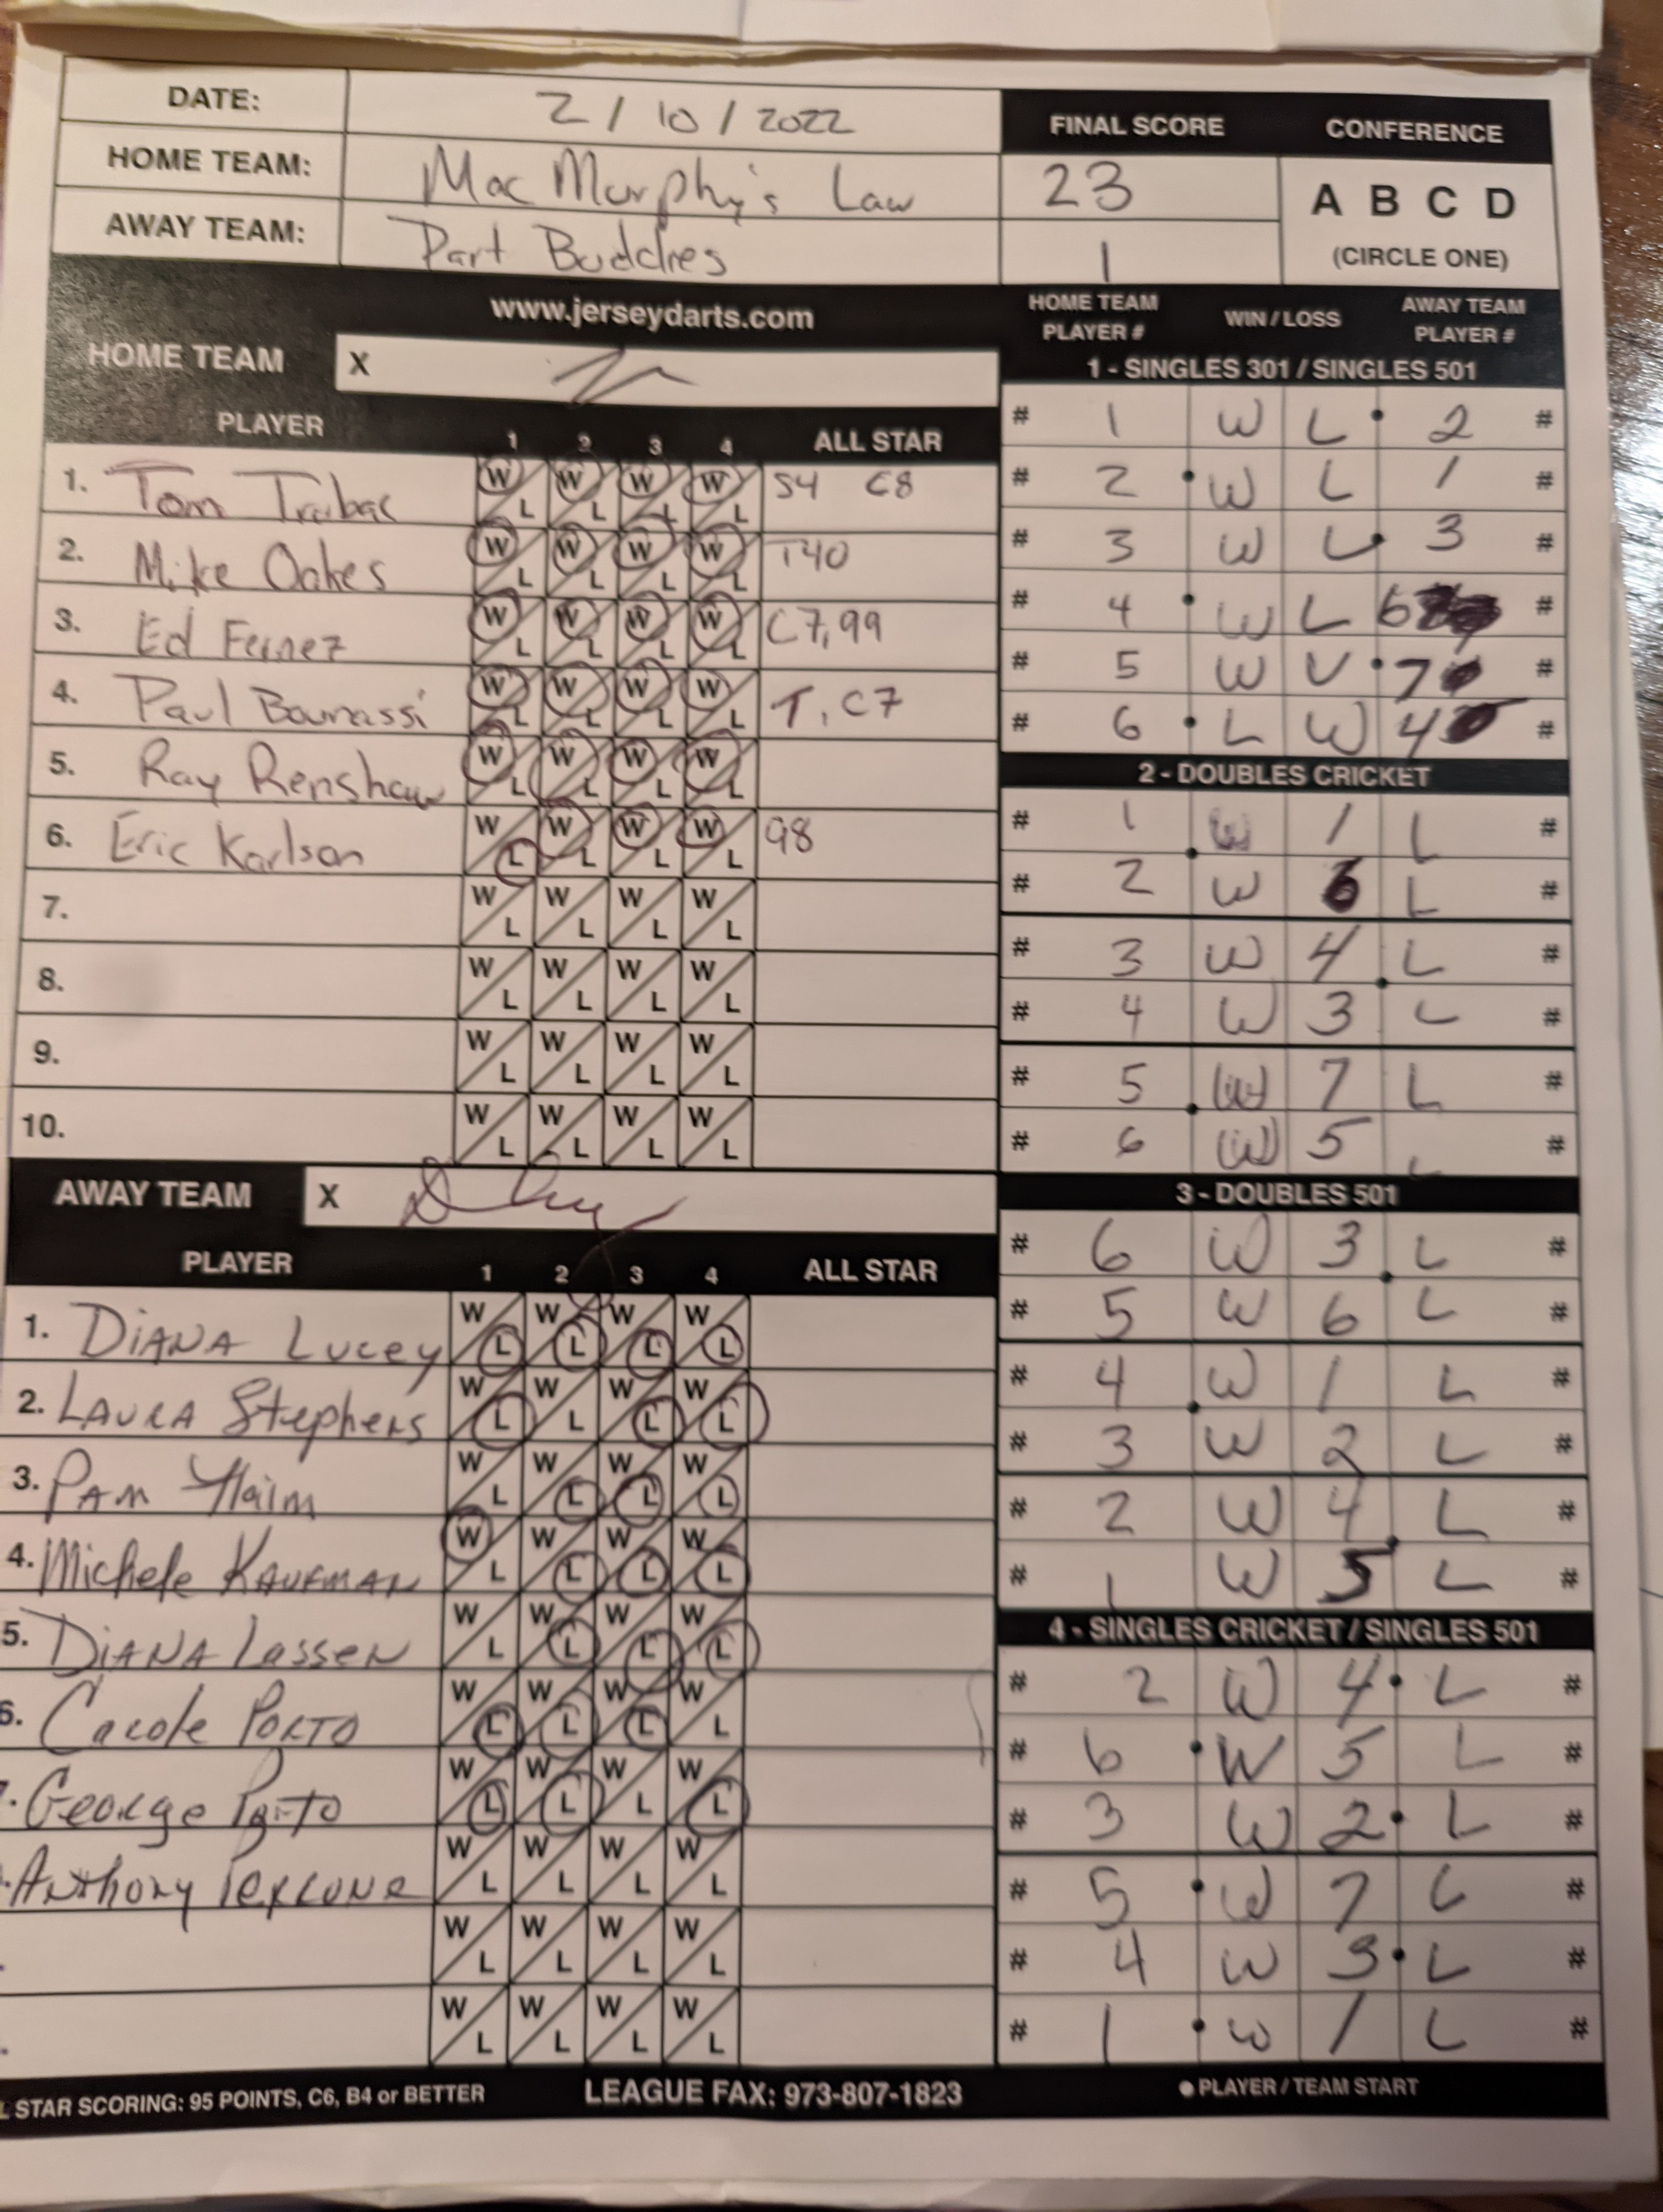 DATE: 2/10/2022
HOME TEAM: MacMurphy's Law
AWAY TEAM: Dart Buddies
FINAL SCORE CONFERENCE
23
1
A B C D
(CIRCLE ONE)
www.jerseydarts.com
HOME TEAM X
PLAYER 1 2 3 4 ALL STAR
1. Tom W L W L W L W L S4 C8
2. Mike Oakes W L W L W L W L T40
3. Ed W L W L W L W L C7, 99
4. Paul W L W L W L W L T, C7
5. Ray Renshaw W L W L W L W L
6. Eric Karlson W L W L W L W L 98
7. W L W L W L W L
8. W L W L W L W L
9. W L W L W L W L
10. W L W L W L W L
AWAY TEAM X
PLAYER 1 2 3 4 ALL STAR
1. DIANA LUCEY W L W L W L W L
2. LAURA Stephens W L W L W L W L
3. PAM W L W L W L W L
4. Michele KAUFMAN W L W L W L W L
5. DIANA Lassen W L W L W L W L
6. Carole PORTO W L W L W L W L
George Porto W L W L W L W L
Anthony W L W L W L W L
W L W L W L W L
W L W L W L W L
HOME TEAM PLAYER # WIN / LOSS AWAY TEAM PLAYER #
1 - SINGLES 301 / SINGLES 501
# 1 W L 2 #
# 2 W L 1 #
# 3 W L 3 #
# 4 W L 6 #
# 5 W L 7 #
# 6 L W 4 #
2 - DOUBLES CRICKET
# 1 W 1 L #
# 2 W 6 L #
# 3 W 4 L #
# 4 W 3 L #
# 5 W 7 L #
# 6 W 5 L #
3 - DOUBLES 501
# 6 W 3 L #
# 5 W 6 L #
# 4 W 1 L #
# 3 W 2 L #
# 2 W 4 L #
# 1 W 5 L #
4 - SINGLES CRICKET / SINGLES 501
# 2 W 4 L #
# 6 W 5 L #
# 3 W 2 L #
# 5 W 7 L #
# 4 W 3 L #
# 1 W 1 L #
STAR SCORING: 95 POINTS, C6, B4 or BETTER LEAGUE FAX: 973-807-1823 ● PLAYER / TEAM START